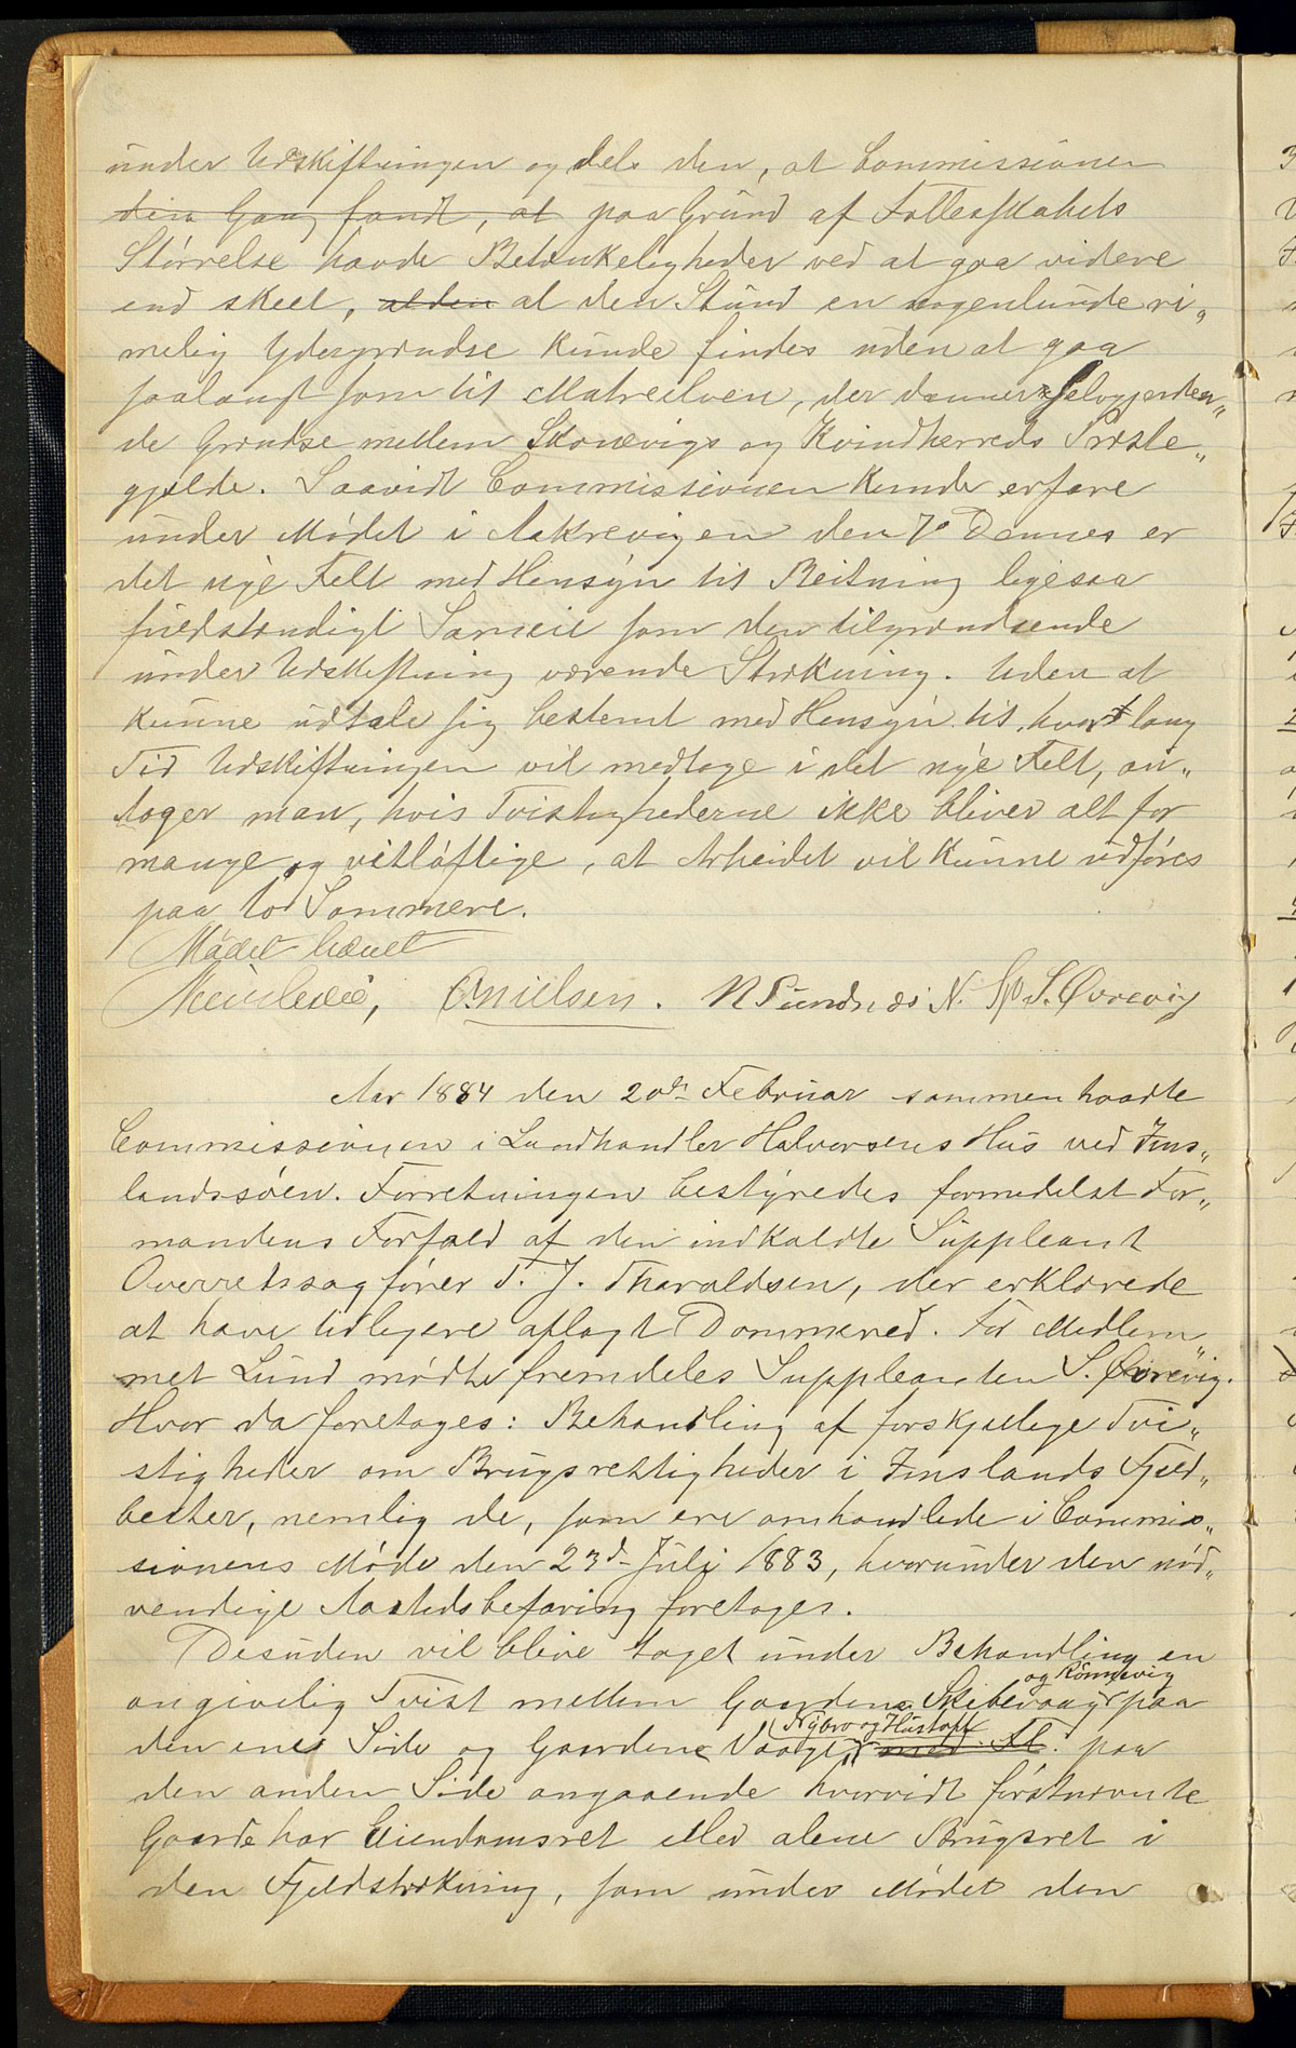 under Udskiftningen og dels den, at Commissionen
den Gang fandt, at paa Grund af Fællesskabets
Størrelse havde Betænkeligheder ved at gaa videre
end skeet, al den al den Stund en nogenlunde ri„
melig Ydergrændse kunde findes uden at gaa
saalangt som til Matreelven, der danner selvgjørden„
de Grændse mellem Skonevigs og Kvindherreds Præste„
gjelde. Saavidt Commissionen kunde erfare
under Mødet i Aakrevigen den 7de Dennes er
det nye Felt med Hensyn til Beitning ligesaa
fuldstændigt Sameie som den tilgrændsende
under Udskiftning værende Strækning. Uden at
kunne udtale sig bestemt med Hensyn til, hvor lang
Tid Udskiftningen vil medtage i det nye Felt, an„
tager man, hvis Tvistighederne ikke bliver alt for
mange og vitløftige, at Arbeidet vil kunne udføres
paa to Sommere.
Mødet hævet
O. Nielsen. N Sundnæs N. S. Øvrevig
Aar 1884 den 20de Februar sammenhaadte
Commissionen i Landhandler Halvorsens Hus ved Ims„
landssøen. Forretningen bestyredes formedelst For„
mandens Forfald af den indkaldte Suppleant
Overretssagfører T. J. Tharaldsen, der erklærede
at have tidligere aflagt Dommered. For Medlem„
met Lund mødte fremdeles Suppleanten S. Øvrevig.
Hvor da foretages: Behandling af forskjellige Tvi„
stigheder om Brugsrettigheder i Imslands Fjeld„
beiter, nemlig de, som ere omhandlede i Commis„
sionens Møde den 23d Juli 1883, hvorunder den nød„
vendige Aastedsbefaring foretages.
Desuden vil blive taget under Behandling en
og Rönnevig
angivelig Tvist mellem Gaardene Skibevaag paa
Nybro og Hustoft
den ene Side og Gaardene Vaage med Fl. paa
den anden Side angaaende hvorvidt førstnævnte
Gaarde har Eiendomsret eller alene Brugsret i
den Fjeldstrækning, som under Mødet den